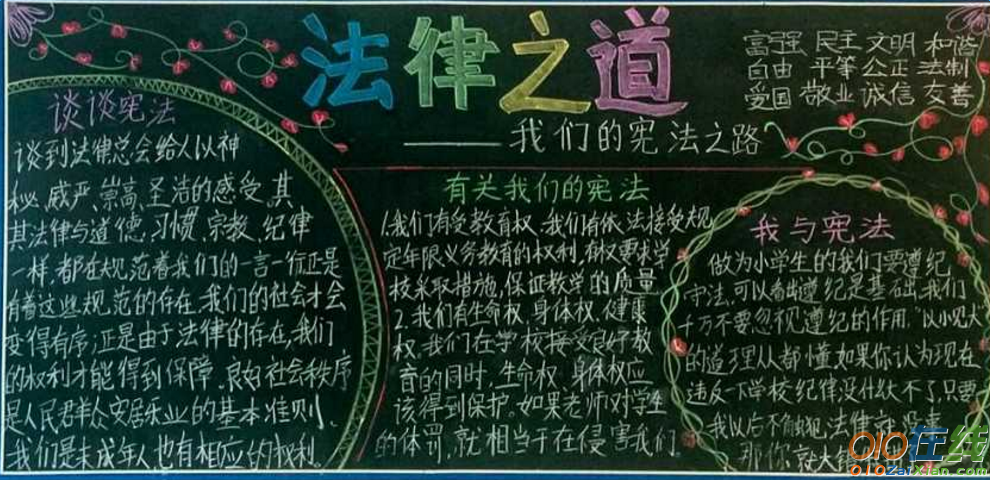 法律之道
——我们的宪法之路
富强 民主 文明 和谐
自由 平等 公正 法制
爱国 敬业 诚信 友善
谈谈宪法
谈到法律总会给人以神
秘、威严、崇高、圣洁的感受,其
其法律与道德、习惯、宗教、纪律
一样,都在规范着我们的一言一行正是
有着这些规范的存在,我们的社会才会
变得有序;正是由于法律的存在,我们
的权利才能得到保障。良好社会秩序
是人民群众安居乐业的基本准则。
我们是未成年人,也有相应的权利。
有关我们的宪法
1.我们有受教育权。我们有依法接受规
定年限义务教育的权利,有权要求学
校采取措施,保证教学的质量
2.我们有生命权、身体权、健康
权。我们在学校接受良好教
育的同时,生命权、身体权应
该得到保护。如果老师对学生
的体罚,就相当于在侵害我们
我与宪法
做为小学生的我们要遵纪
守法,可以看出遵纪是基础,我们
千万不要忽视遵纪的作用,“以小见大”
的道理人都懂,如果你认为现在
违反一下学校纪律,没什么大不了,只要
我以后不能犯,法律就没事
那你就大错
010在线
010ZaiXian.com